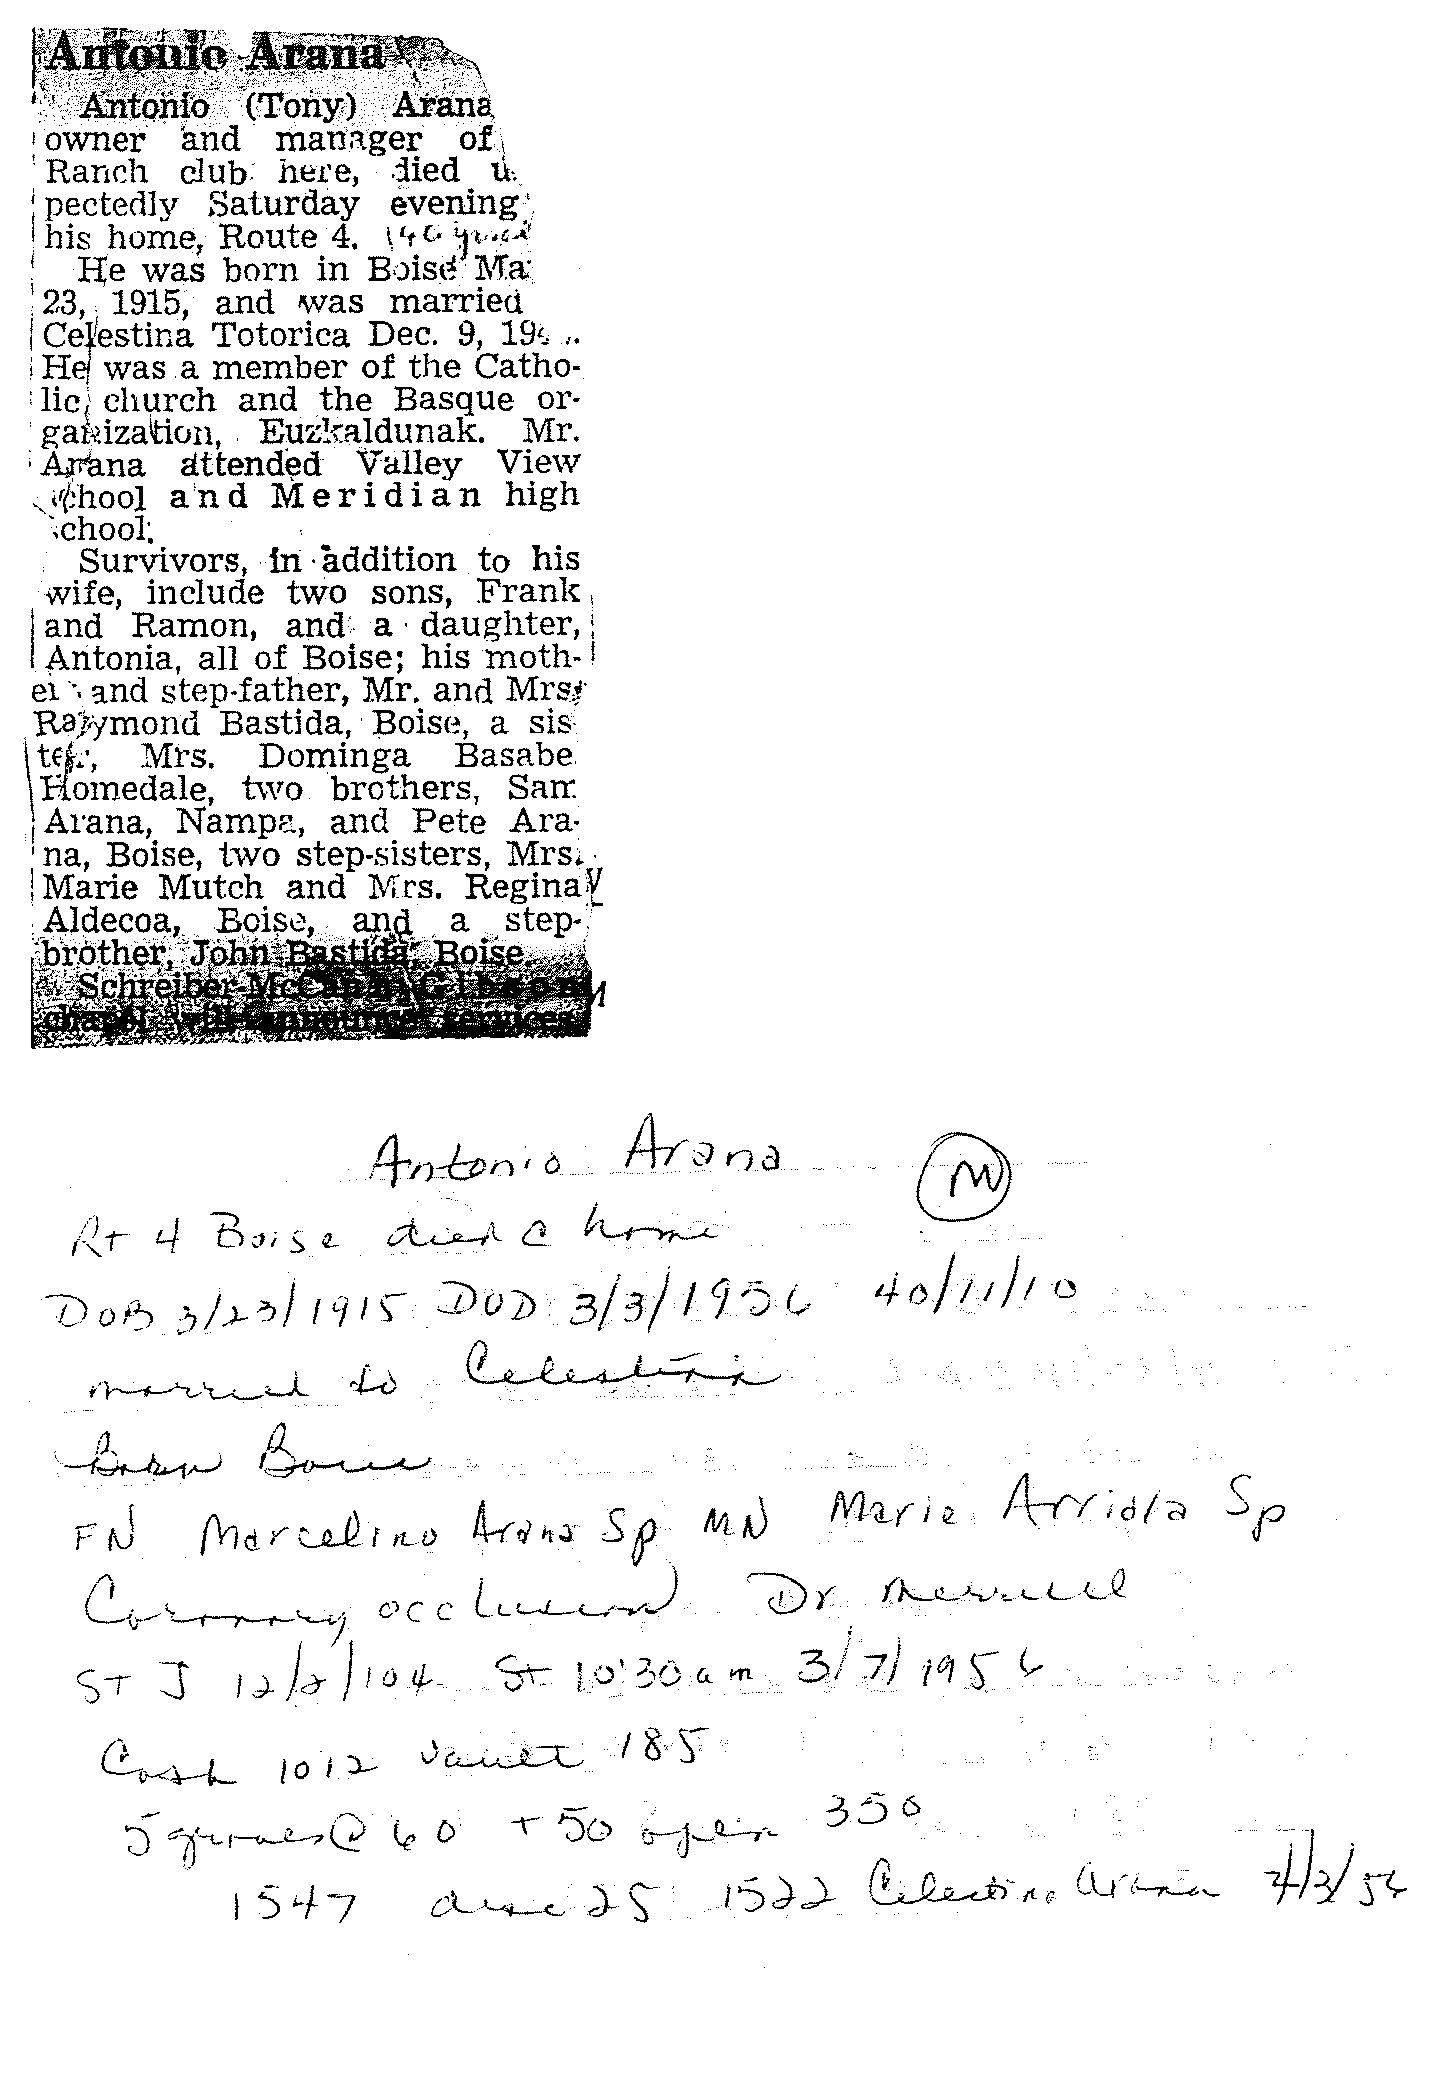 Antonio Arana
Antonio (Tony) Arana
owner and manager of
Ranch club here, died
pectedly Saturday evening
his home, Route 4.
He was born in Boise Ma
23, 1915, and was married
Celestina Totorica Dec. 9, 19
He was a member of the Catho-
lic church and the Basque or-
ganization, Euzkaldunak. Mr.
Arana attended Valley View
school and Meridian high
school.
Survivors, in addition to his
wife, include two sons, Frank
and Ramon, and a daughter,
Antonia, all of Boise; his moth-
er and step-father, Mr. and Mrs.
Raymond Bastida, Boise, a sis
ter, Mrs. Dominga Basabe
Homedale, two brothers, Sam
Arana, Nampa, and Pete Ara-
na, Boise, two step-sisters, Mrs.
Marie Mutch and Mrs. Regina
Aldecoa, Boise, and a step-
brother, John Bastida, Boise.
Schreiber-McCann Gibson
chapel will announce services.
Antonio Arana M
Rt 4 Boise died @ home
DOB 3/23/1915 DOD 3/3/1956 40/11/10
married to Celestina
Born Boise
FN Marcelino Arana Sp MN Marie Arriola Sp
Coronary occlusion Dr Merrill
ST J 12/2/104 St 10:30 am 3/7/1956
Cash 1012 vault 185
5 graves @ 60 + 50 open 350
1547 disc 25 1522 Celestina Arana /3/56